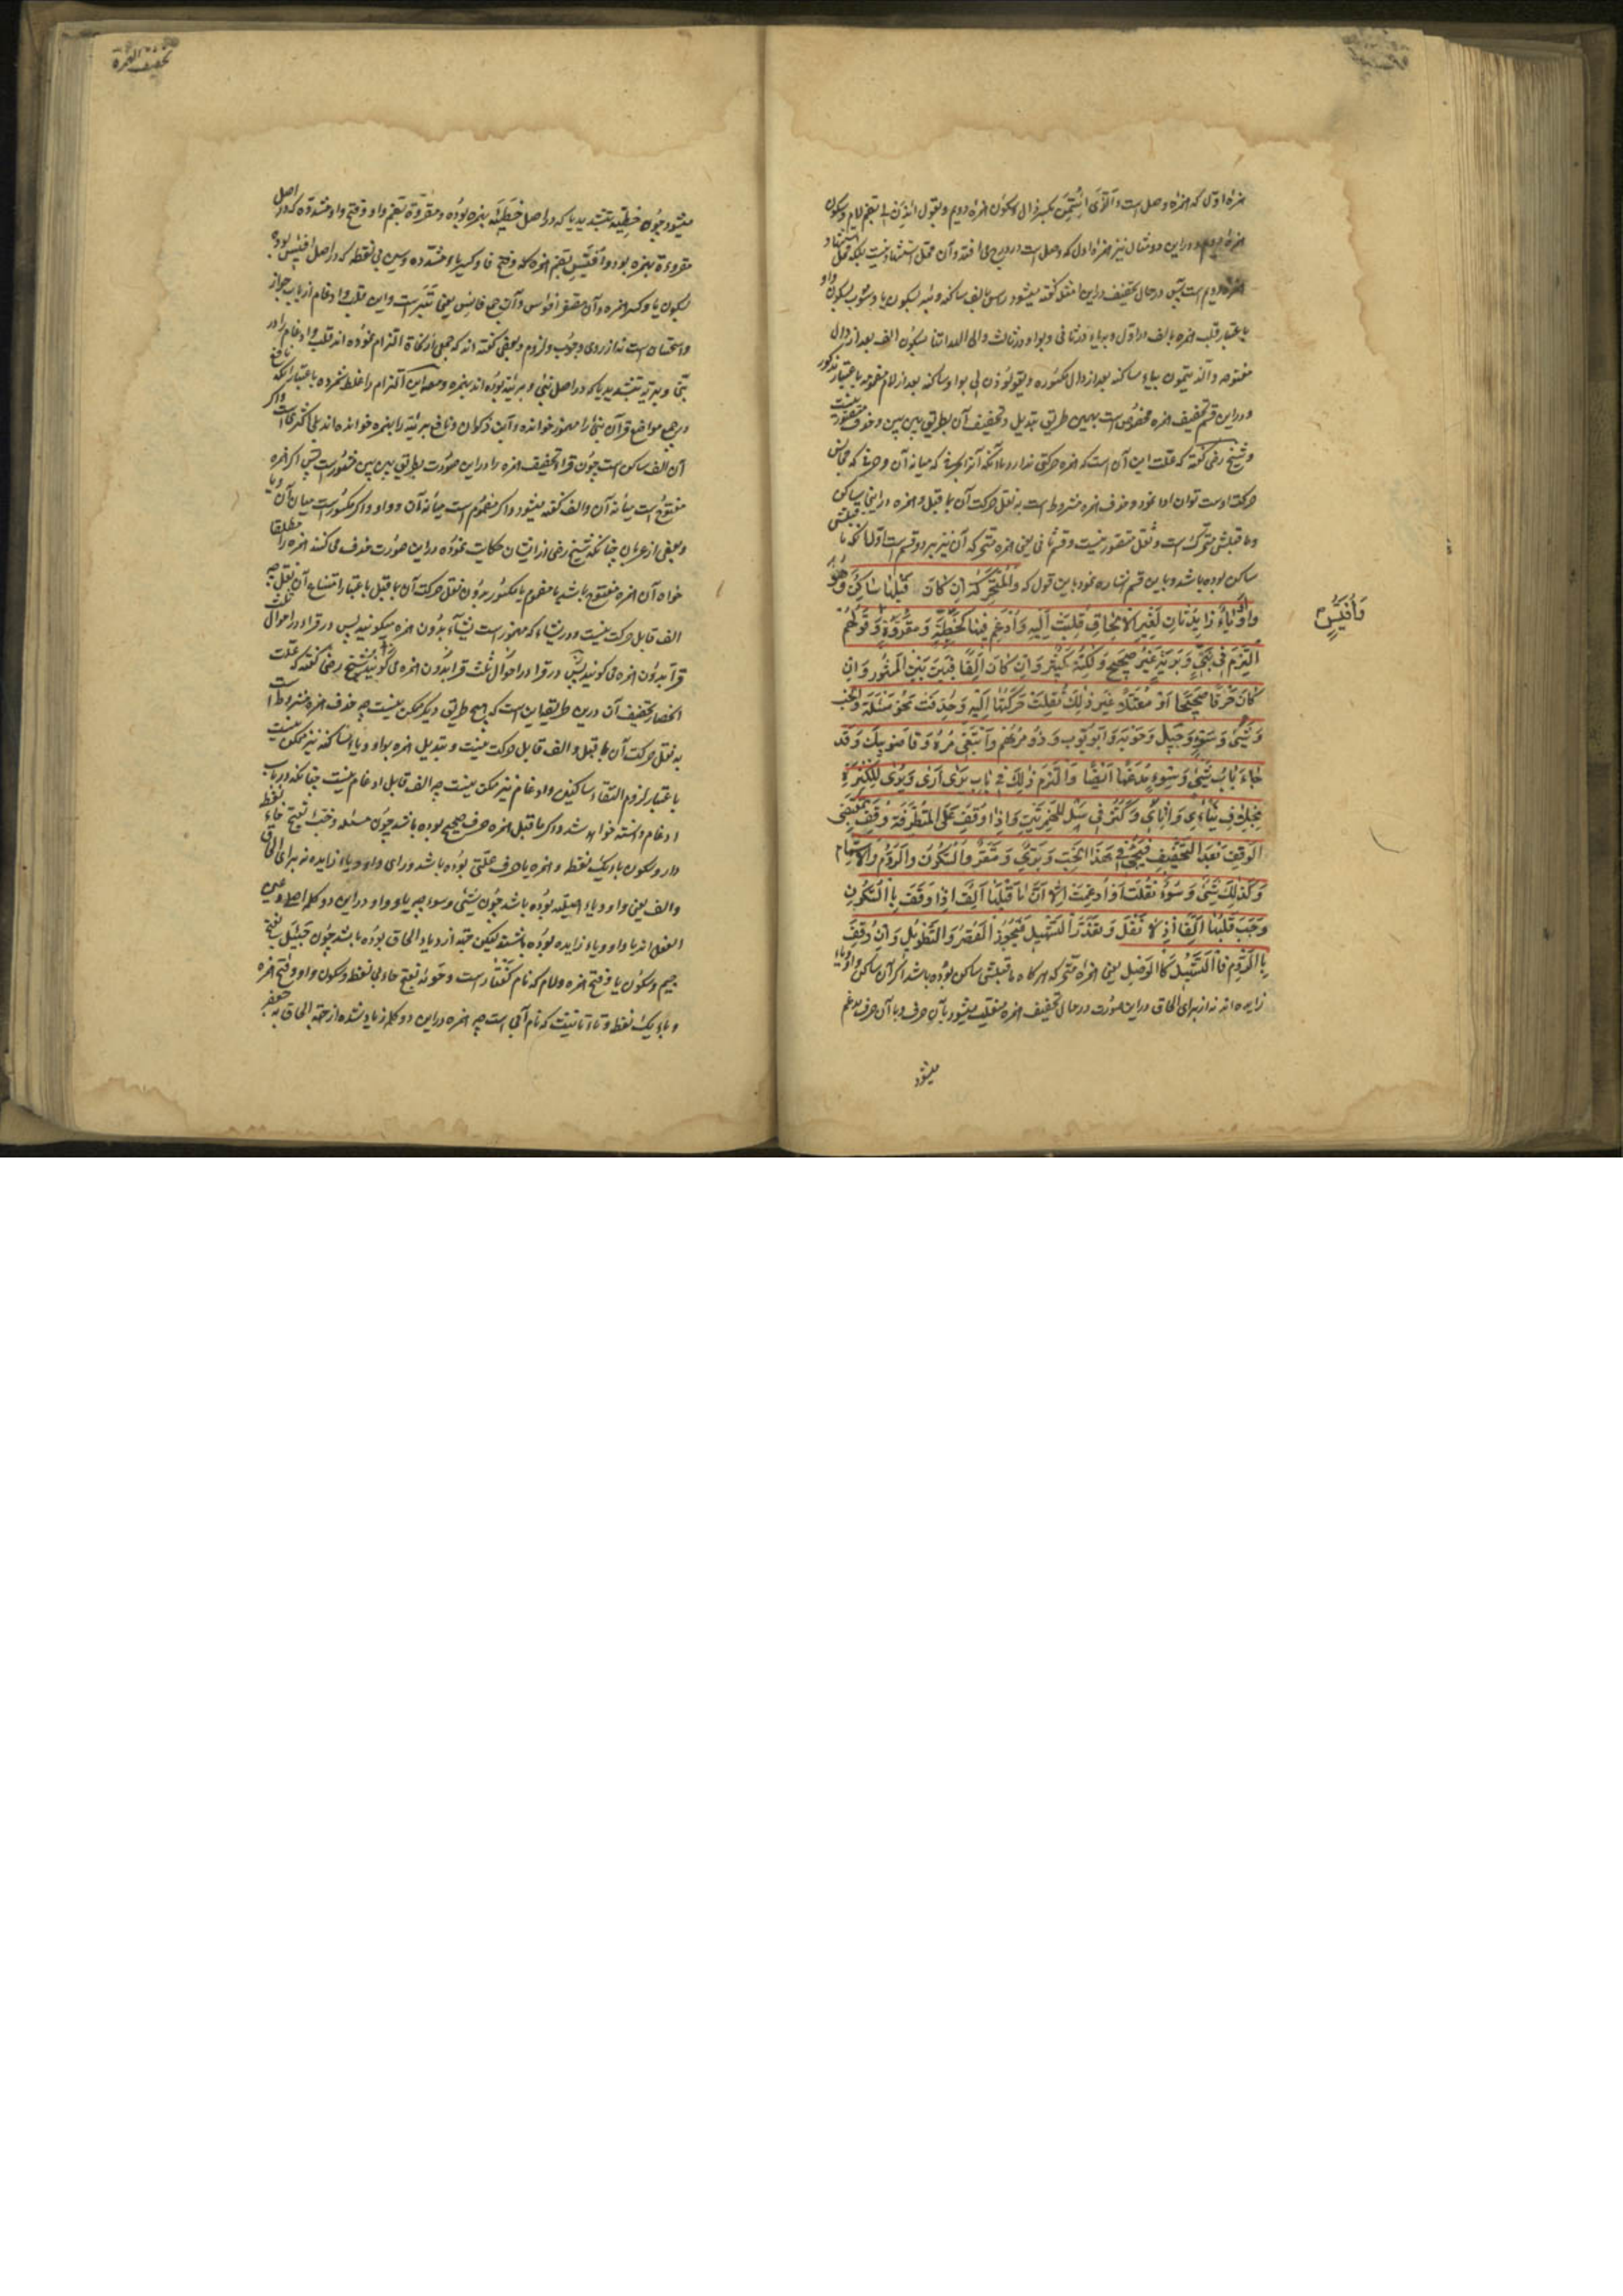 همزهٔ اولی که همزه وصل است و الّذی ائتُمِنَ بکسر ذال و سکون همزه دویم و یقول ائذن لی بضم لام و سکون
همزه دویم و در این دو مثال نیز همزه اول که وصل است در درج می افتد و آن محل استشهاد نیست بلکه محل استشهاد
همزه دویم است پس در حال تخفیف در این امثله گفته میشود راس بالف ساکنه و بیر بسکون یا و سوت بسکون واو
باعتبار قلب همزه بالف در اول و بیاء در ثانی و بواو در ثالث و الی الهداتنا بسکون الف بعد از دال
مفتوحه و الّذیتمن بیاء ساکنه بعد از ذال مکسوره و یقولوذن لی بواو ساکنه بعد از لام مضمومه باعتبار مذکور
و در این قسم تخفیف همزه مخصوص است بهمین طریق تبدیل و تخفیف آن بطریق بین بین و حذف متصور نیست
و شیخ رضی گفته که علت این آن است که همزه حرکتی ندارد تا آنکه آنرا بحرفی که میانه آن و حرفی که مجانس
حرکت اوست توان ادا نمود و حذف همزه مشروط است به نقل حرکت آن بما قبل و همزه در اینجا ساکن
و ما قبلش متحرک است و نقل متصور نیست و قسم ثانی یعنی همزه متحرکه آن نیز بر دو قسم است اول آنکه ما قبلش
ساکن بوده باشد و باین قسم اشاره نمود باین قول که وَالْمُتَحَرِّکَةُ اِنْ کَانَ قَبْلَهَا سَاکِنٌ وَهُوَ
وَاوٌ اَوْ یَاءٌ زَایِدَتَانِ لِغَیْرِ الْاِلْحَاقِ قُلِبَتْ اِلَیْهِ وَ اُدْغِمَ فِیهَا کَخَطِیَّةٍ وَ مَقْرُوَّةٍ وَ قَوْلُهُمْ
وَ اُفَیِّسٍ
اُلْتُزِمَ فِی نَبِیٍّ وَ بَرِیَّةٍ غَیْرُ صَحِیحٍ وَلٰکِنَّهُ کَثِیرٌ وَ اِنْ کَانَ اَلِفًا فَبَیْنَ بَیْنَ الْمَشْهُورِ وَ اِنْ
کَانَ حَرْفًا صَحِیحًا اَوْ مُعْتَلًّا غَیْرَ ذٰلِکَ نُقِلَتْ حَرَکَتُهَا اِلَیْهِ وَ حُذِفَتْ نَحْوَ مَسَلَةٍ وَ الْخَبِ
وَ شَیٍ وَ سَوٍ وَ جَیَلٍ وَ حَوَبَةٍ وَ اَبُو یُّوبَ وَ ذُو مْرِهِمْ وَ اتَّبِعِی مْرَهُ وَ قَاضُو بِیکَ وَ قَدْ
جَاءَ بَابُ شَیْءٍ وَ سَوْءٍ مُدْغَمًا اَیْضًا وَ الْتُزِمَ ذٰلِکَ فِی بَابِ یَرَی وَ اَرَی وَ یُرِی لِلْکَثْرَةِ
بِخِلَافِ یَنْاَی وَ اَنْاَی وَ کَثُرَ فِی سَلْ لِلْهَمْزَتَیْنِ وَ اِذَا وُقِفَ عَلَی الْمُتَطَرِّفَةِ وُقِفَ بِمُقْتَضَی
الْوَقْفِ بَعْدَ التَّخْفِیفِ فَیَجِیءُ فِی هٰذَا الْخَبِ وَ بَرِیٍّ وَ مَقْرُوٍّ السُّکُونُ وَ الرَّوْمُ وَ الْاِشْمَامُ
وَ کَذٰلِکَ شَیْءٌ وَ سَوْءٌ نَقَلْتَ اَوْ اَدْغَمْتَ اِلَّا اَنَّ مَا قَبْلَهَا اَلِفٌ اِذَا وُقِفَ بِالسُّکُونِ
وَجَبَ قَلْبُهَا اَلِفًا اِذْ لَا نَقْلَ وَ تَعَذَّرَ التَّسْهِیلُ فَیَجُوزُ الْقَصْرُ وَ التَّطْوِیلُ وَ اِنْ وُقِفَ
بِالرَّوْمِ فَالتَّسْهِیلُ کَالْوَصْلِ یعنی همزهٔ متحرکه هرگاه ما قبلش ساکن بوده باشد اگر آن ساکن واو و یاء
زایده اند نه از برای الحاق در این صورت در حال تخفیف همزه منقلب میشود بآن حرف و با آن حرف مدغم
میشود
تخفیف الهمزة
میشود چون خطیّة بتشدید یا که در اصل خطیئة بهمزه بوده و مقروّة بضم واو و فتح واو مشدده که در اصل
مقروءة بهمزه بود و اُفَیِّس بضم همزه و فتح فا و کسر یاء مشدده و سین بی نقطه که در اصل اُفَیْئِس بود
بسکون یا و کسر همزه و آن مصغر افؤس و آن جمع فاس یعنی تبر است و این قلب و ادغام از باب جواز
و استحسان است نه از روی وجوب و لزوم و بعضی گفته اند که جمیع نحاة التزام نموده اند قلب و ادغام را در
نبیّ و بریّة بتشدید یا که در اصل نبیء و بریئة بوده اند بهمزه و مصنف این التزام را غلط شمرده باعتبار آنکه نافع
در جمیع مواضع قرآن نبیء را مهموز خوانده و ابن ذکوان و نافع بریئة را بهمزه خوانده اند بلی اکثری است و اگر
آن الف ساکن است چون قراءة تخفیف همزه را در این صورت بطریق بین بین مشهور است پس اگر همزه
مفتوح است میانه آن و الف گفته میشود و اگر مضموم است میانه آن و واو و اگر مکسور است میان آن و یا
و بعضی از عربان چنانکه شیخ رضی از ایشان حکایت نموده در این صورت حذف می کنند همزه را مطلقا
خواه آن همزه مفتوح باشد یا مضموم یا مکسور بدون نقل حرکت آن بما قبل باعتبار امتناع آن نقل چه
الف قابل حرکت نیست و در یشاء که مهموز است یشا بدون همزه میگویند پس در قراء در احوال ثلث
قرا بدون همزه می گویند و شیخ رضی گفته که علت
انحصار تخفیف آن درین طریق این است که هیچ طریق دیگر ممکن نیست چه حذف همزه مشروط است
به نقل حرکت آن بما قبل و الف قابل حرکت نیست و تبدیل همزه بواو و یا و الف ساکنه نیز ممکن نیست
باعتبار لزوم التقاء ساکنین و ادغام نیز ممکن نیست چه الف قابل ادغام نیست چنانکه در باب
ادغام دانسته خواهد شد و اگر ما قبل همزه حرف صحیح بوده باشد چون مسئله و خبء بفتح خاء نقطه
دار و سکون باء یک نقطه و همزه یا حرف علتی بوده باشد ورای واو و یاء زایده نه برای الحاق
و الف یعنی واو و یاء اصلیّه بوده باشد چون شیء و سوء چه یا و واو در این دو کلمه اصلی و عین
الفعل اند یا واو و یاء زایده بوده باشند لیکن جهة ازدیاد الحاق بوده باشد چون جیئل بفتح
جیم و سکون یا و فتح همزه و لام که نام کفتار است و حوئبه بفتح حاء بی نقطه و سکون واو و فتح همزه
و باء یک نقطه و تاء تانیث که نام آبی است چه همزه در این دو کلمه زیاد شده از جهة الحاق به جعفر